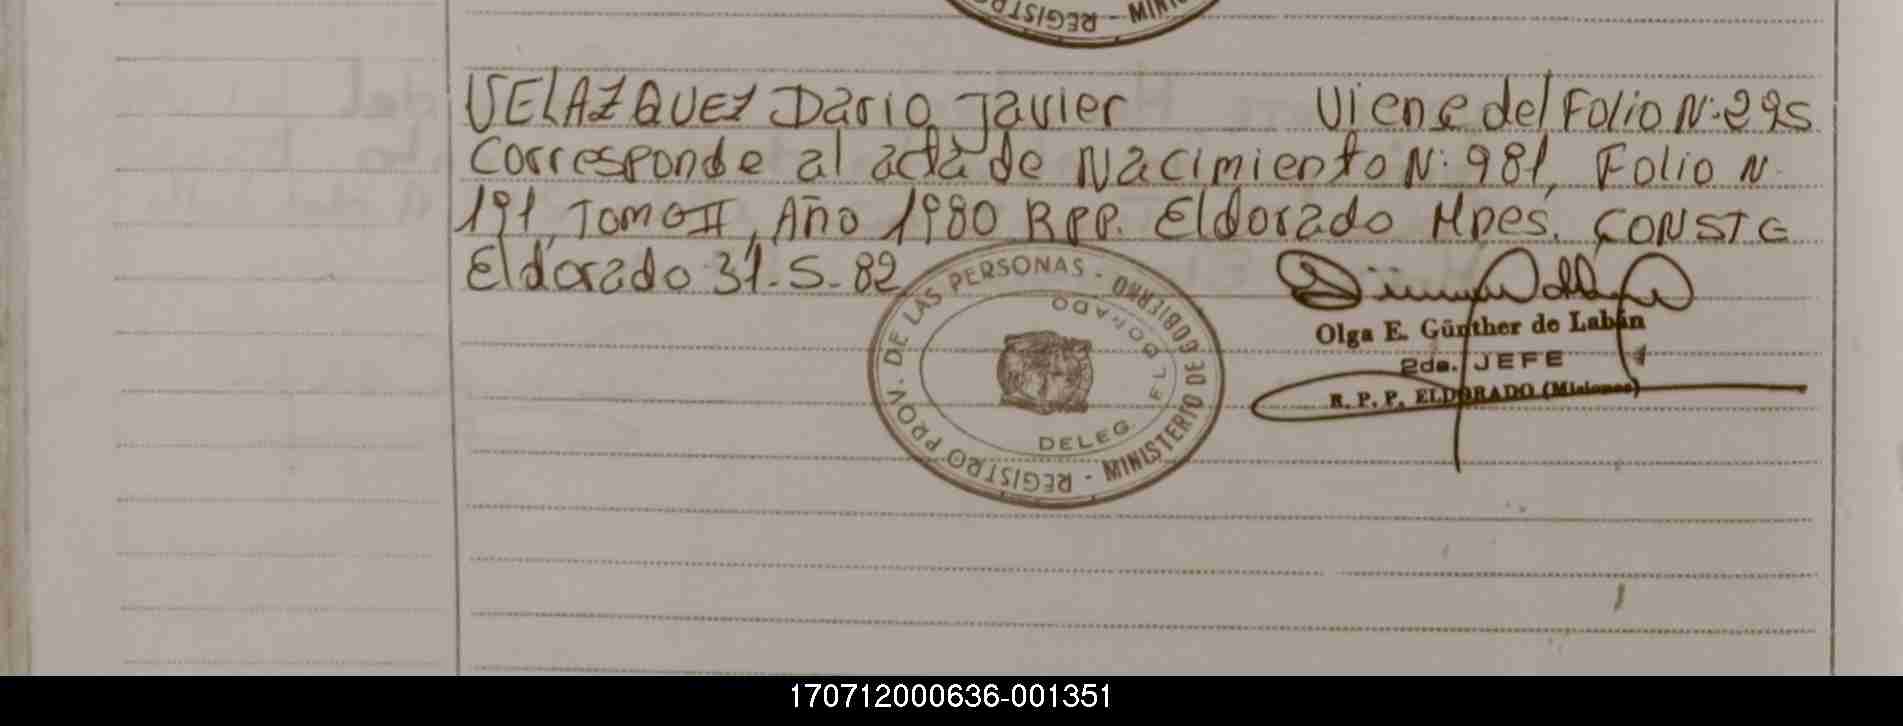 REGISTRO - MINI
VELAZQUEZ Dario Javier Viene del Folio N: 295
Corresponde al acta de Nacimiento N: 981, Folio N.
191, Tomo II, Año 1980 RPP. Eldorado Mnes. CONSTE
Eldorado 31-5-82
REGISTRO PROV. DE LAS PERSONAS - MINISTERIO DE GOBIERNO
DELEG. ELDORADO
Olga E. Günther de Labán
2da. JEFE
R. P. P. ELDORADO (Misiones)
170712000636-001351